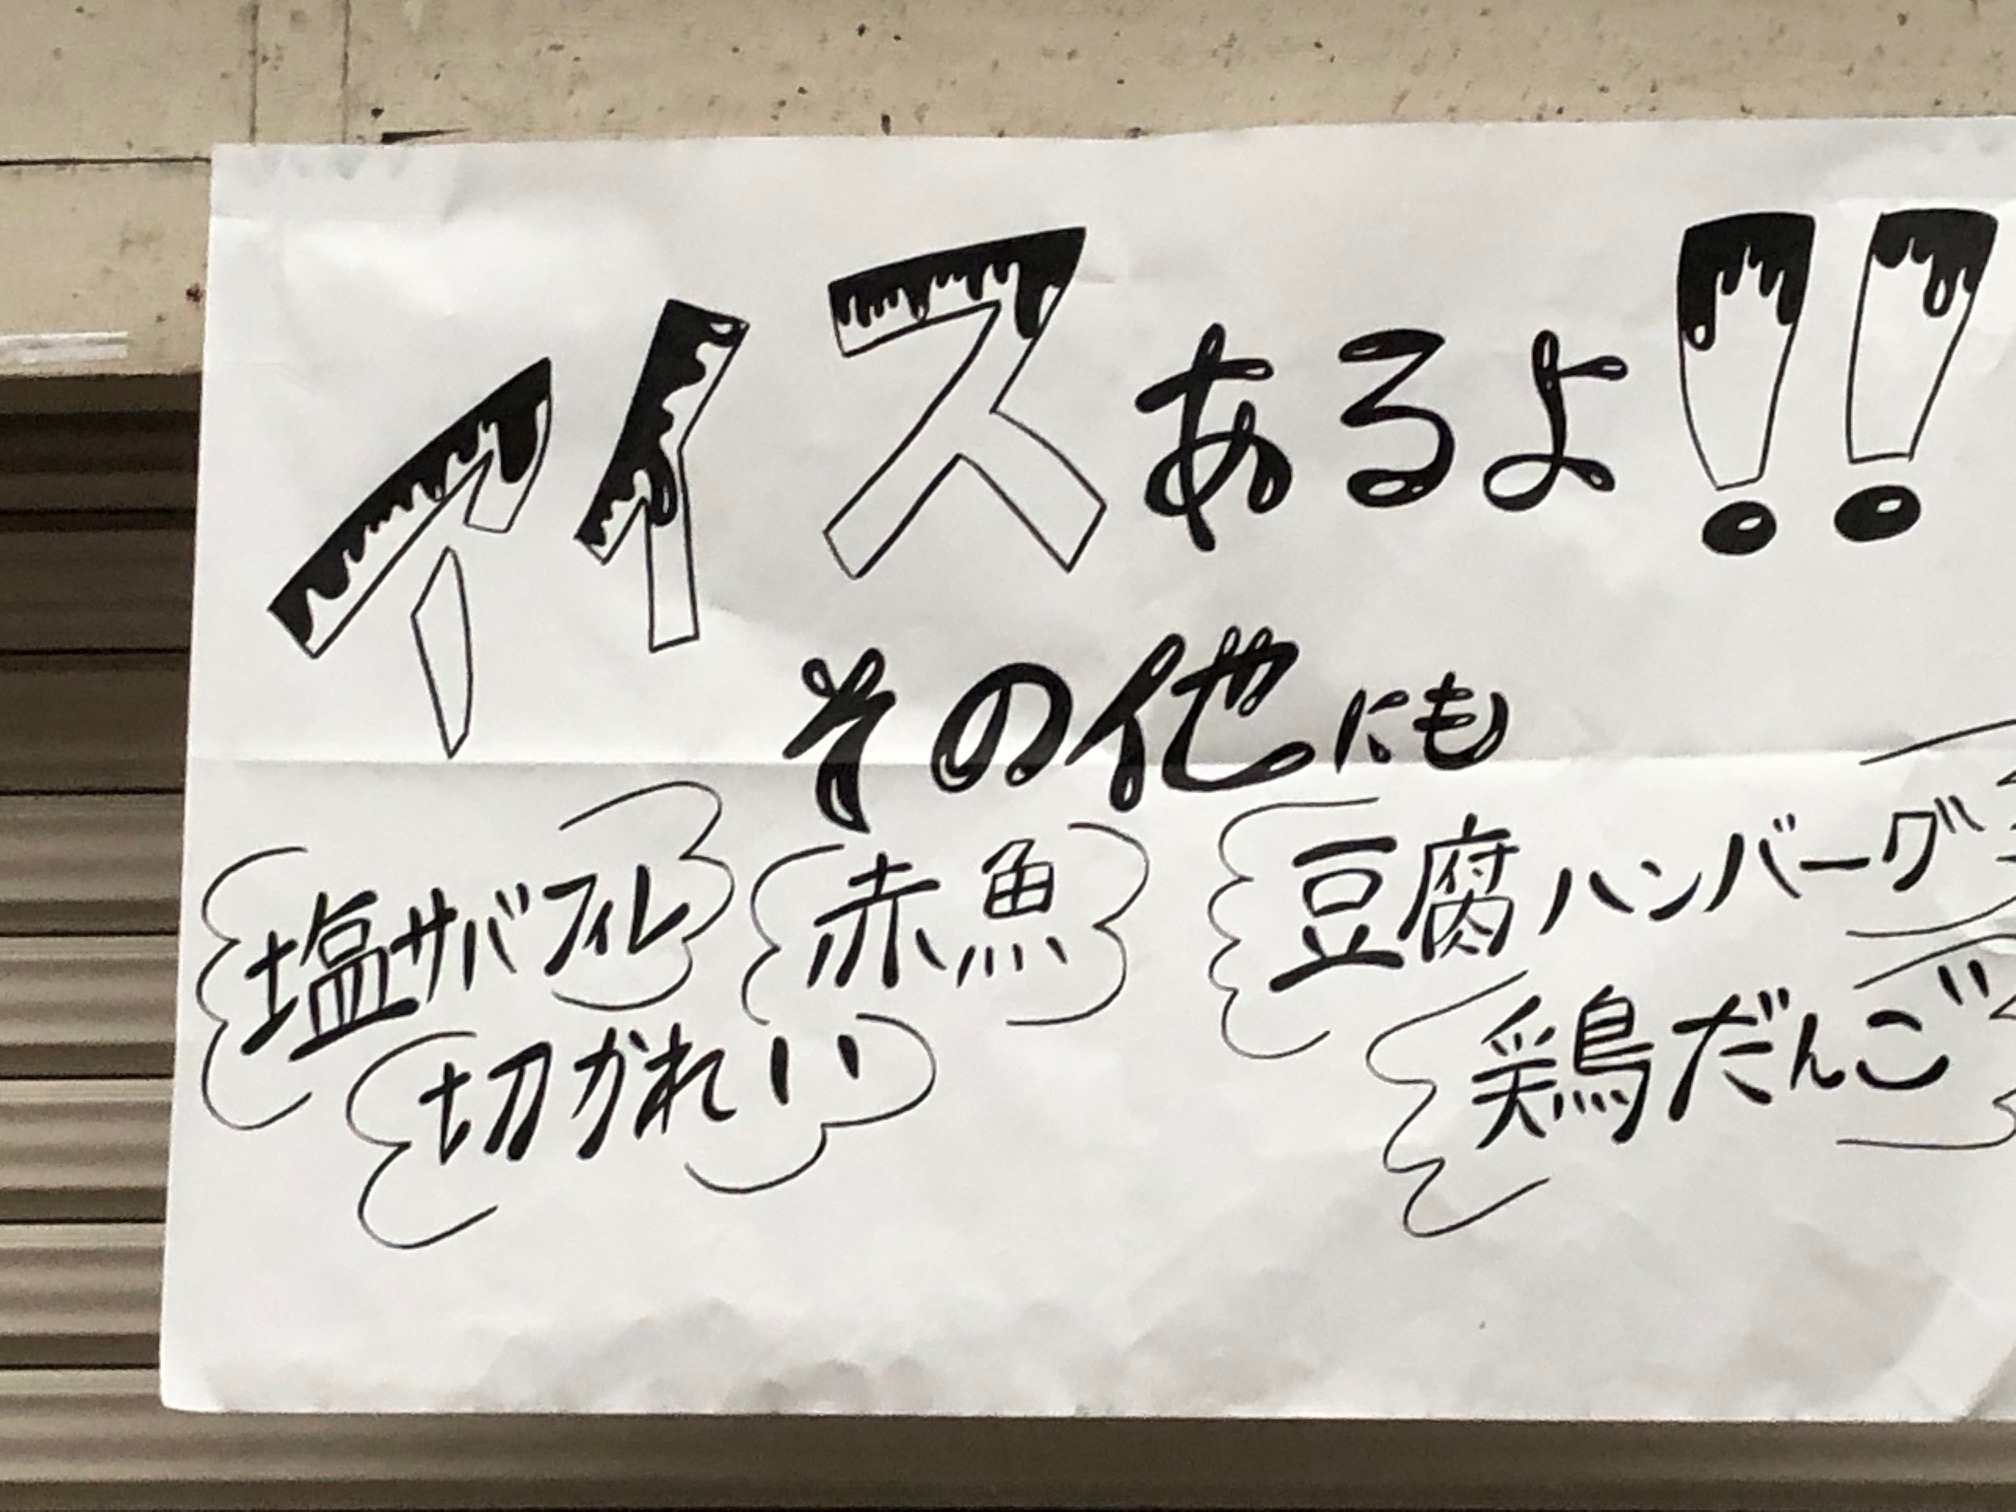 アイスあるよ!!
その他にも
塩サバフィレ 赤魚 豆腐ハンバーグ
切かれい 鶏だんご